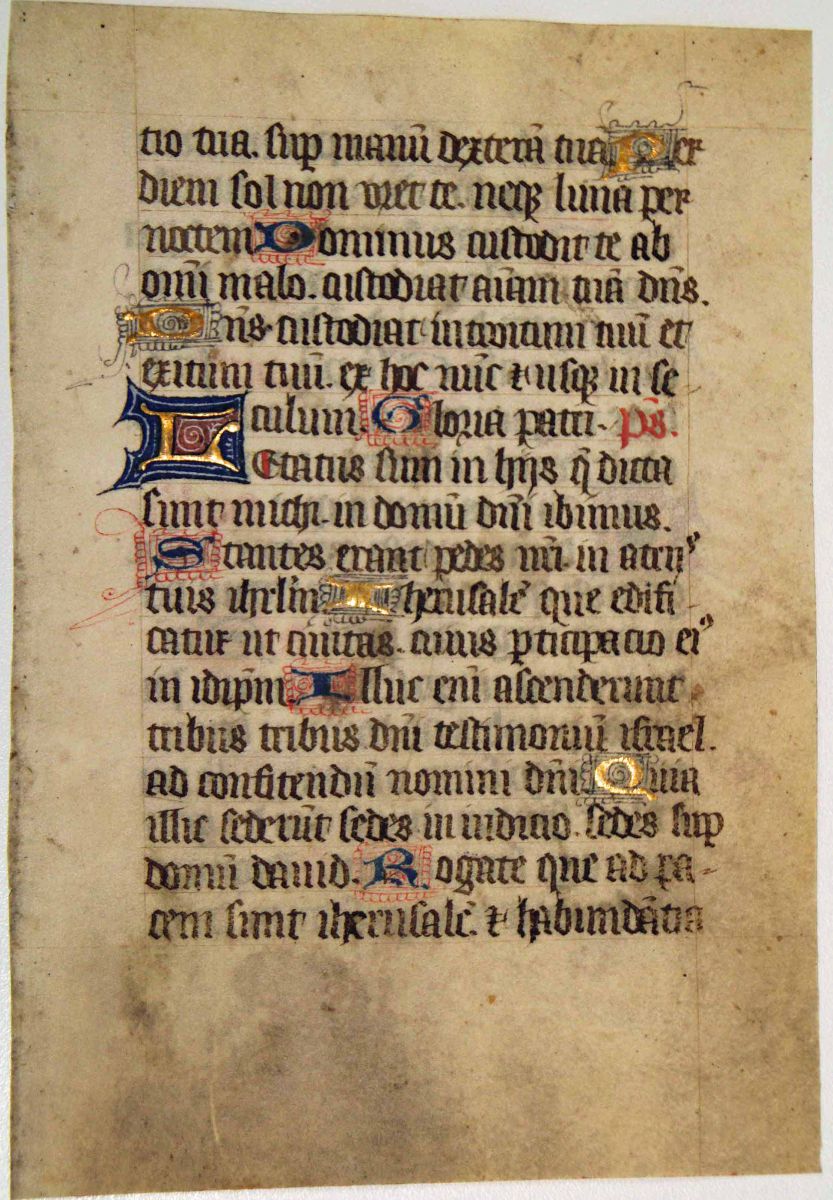 tio tua. sup manū dexterā tuā Per
diem sol non uret te. neq luna per
noctem Dominus custodit te ab
omī malo. custodiat aīam tuā dn̄s.
Dn̄s custodiat introitum tuū et
exitum tuū. ex hoc nūc et usq in se-
culum. Gloria patri. ps̄.
Letatus sum in hijs q̄ dicta
sunt michi. in domū dn̄i ibimus.
Stantes erant pedes nr̄i. in atrijs
tuis ihrl̄m Iherusalē que edifi-
catur ut ciuitas. cuius pticipacio eius
in idipm̄ Illuc enī ascenderunt
tribus tribus dn̄i testimoniū israel.
ad confitendū nomini dn̄i Quia
illic sederūt sedes in iudicio. sedes sup
domū dauid. Rogate que ad pa-
cem sunt iherusalē. et habundātia